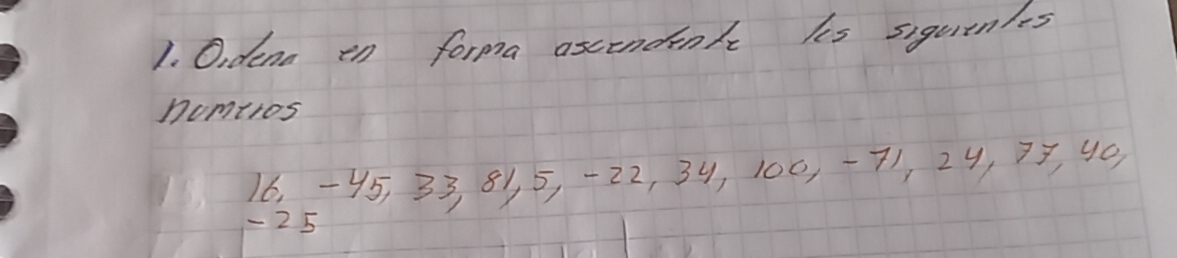 1. Ordena en forma ascendente los siguientes
numeros
16, -45, 33, 81, 5, -22, 34, 100, -71, 24, 77, 40,
-25